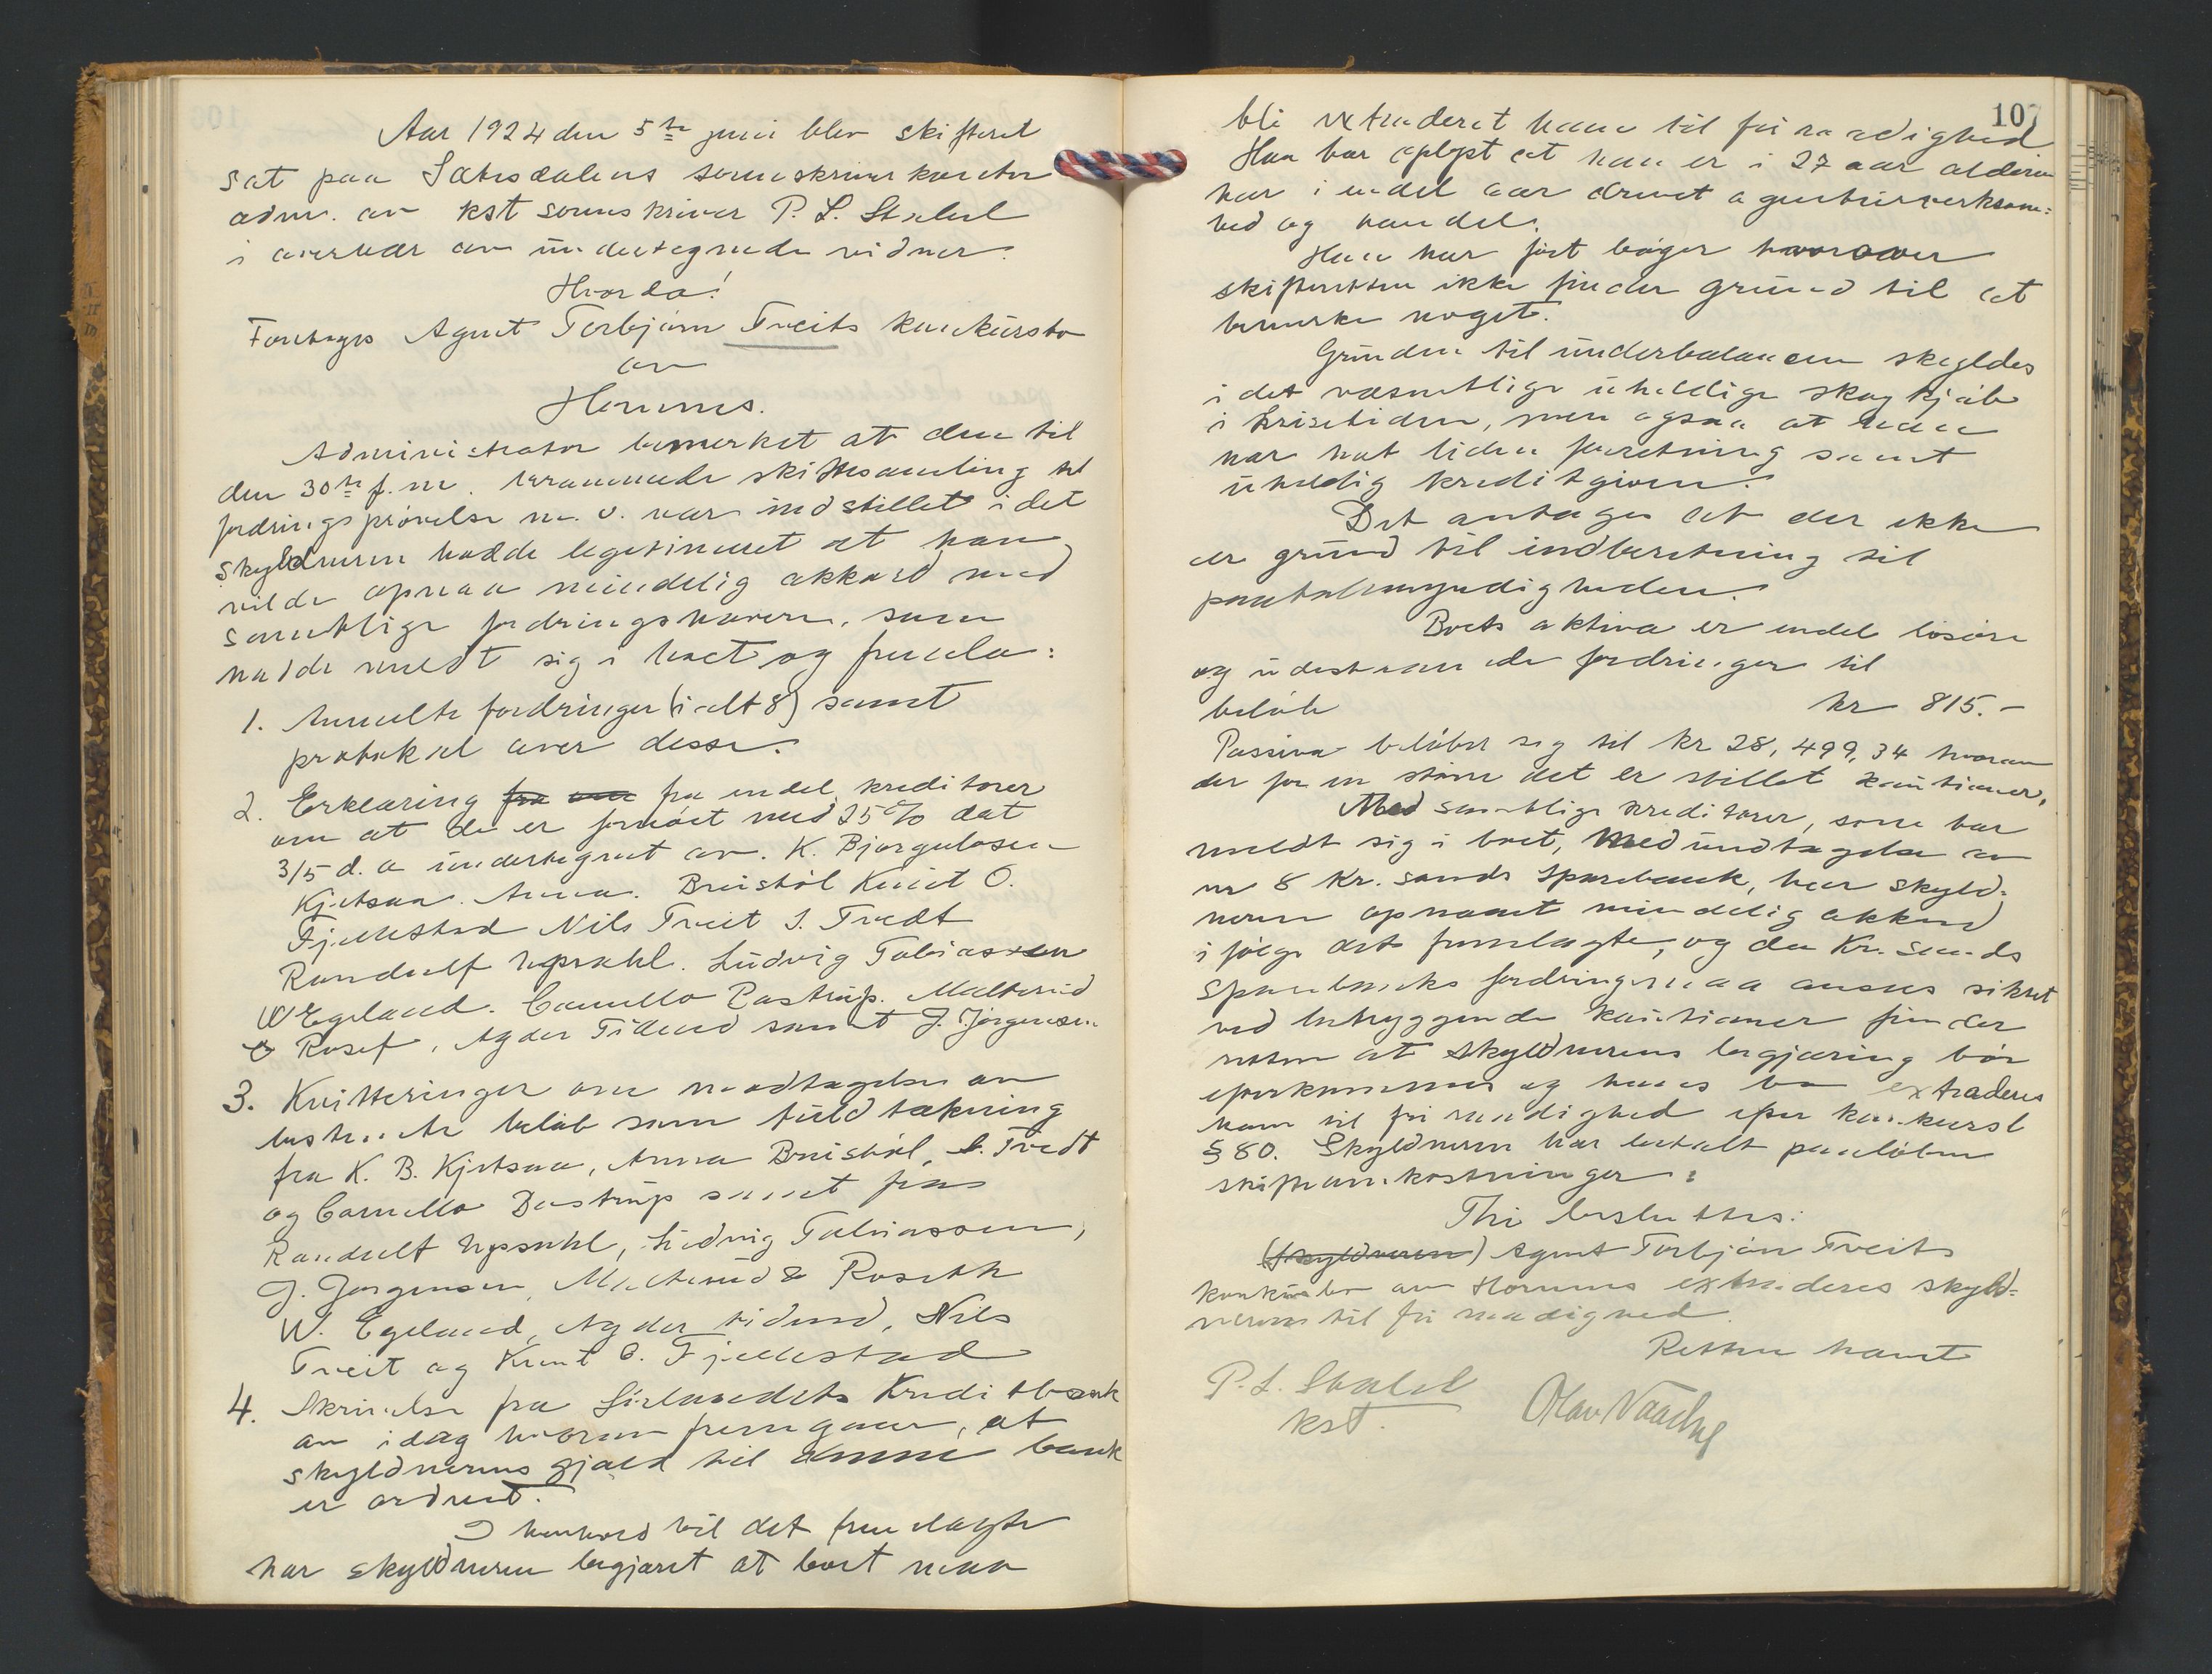 Aar 1924 den 5te juni blev skifteret
sat paa Sætesdalens sorenskriverkontor
adm. av kst sorenskriver P. L. Stabel
i overvær av undertegnede vidner.
Hvorda!
Foretages Agent Torbjørn Treits konkursbo
av
Hornnes.
Administrator bemerket at den til
den 30te f.m. berammede skiftesamling til
fordringsprøvelse m. v. var indstillet idet
skyldneren hadde legitimeret at han
vilde opnaa mindelig akkord med
samtlige fordringshavere, som
hadde meldt sig i boet og fremla:
1. Anmeldte fordringer (ialt 8) samt
protokol over disse.
2. Erklæring fra fra endel kreditorer
om at de er fornøiet med 25% dat
3/5 d. a undertegnet av. K. Bjorgulosen
Kjetsaa. Anna Breistøl Knut O.
Fjellestad Nils Treit S. Tvedt
Randulf Upsahl. Ludvig Tobiassen
W Egeland. Camillo Bastrup. Malterud
& Rosef, Agder Tidend samt J. Jørgensen.
3. Kvitteringer om modtagelse av
bestemte beløb som fuld dækning
fra K. B. Kjetsaa, Anna Breistøl, S. Tvedt
og Camillo Bastrup samt fra
Randulf Upsahl, Ludvig Tobiassen,
J. Jørgensen, Malterud & Roseth
W. Egeland, Agder tidend, Nils
Treit og Knut O. Fjellestad
4. Skrivelse fra Sørlandets Kreditbank
av idag hvorav fremgaar, at
skyldnerens gjæld til denne bank
er ordnet.
I henhold til det fremlagte
har skyldneren begjæret at boet maa
107
bli extraderet ham til fri raadighed
Han har oplyst at han er i 27 aar alderen
har i endel aar drevet agenturverksom:
hed og handel.
Han har ført bøger hvorover
skifteretten ikke finder grund til at
bemerke noget.
Grunden til underbalancen skyldes
i det væsentlige uheldige skogkjøb
i krisetiden, men ogsaa at han
har hat liden forretning samt
uheldig kreditgiven.
Det antages at der ikke
er grund til indberetning til
paatalemyndigheden.
Boets aktiva er endel løsøre
og utestaaende fordringer til
beløb kr 815.-
Passiva beløber sig til kr 28,499,34 hvorav
der for en større del er stillet kautioner.
Med samtlige kreditorer, som har
meldt sig i boet, med undtagelse av
nr 8 Kr. sands Sparebank, har skyld:
neren opnaaet mindelig akkord
i følge det fremlagte, og da Kr. sands
Sparebanks fordring maa ansees sikret
ved betryggende kautioner finder
retten at skyldnerens begjæring bør
efterkommes og hans bo extraderes
ham til fri raadighed efter konkursl
§ 80. Skyldneren har betalt paaløbne
skifteomkostninger:
Thi besluttes:
(Skyldneren) Agent Torbjørn Treits
konkursbo av Hornnes extraderes skyld-
neren til fri raadighed.
Retten hævet
P. L. Stabel
kst.
Olav Naadn